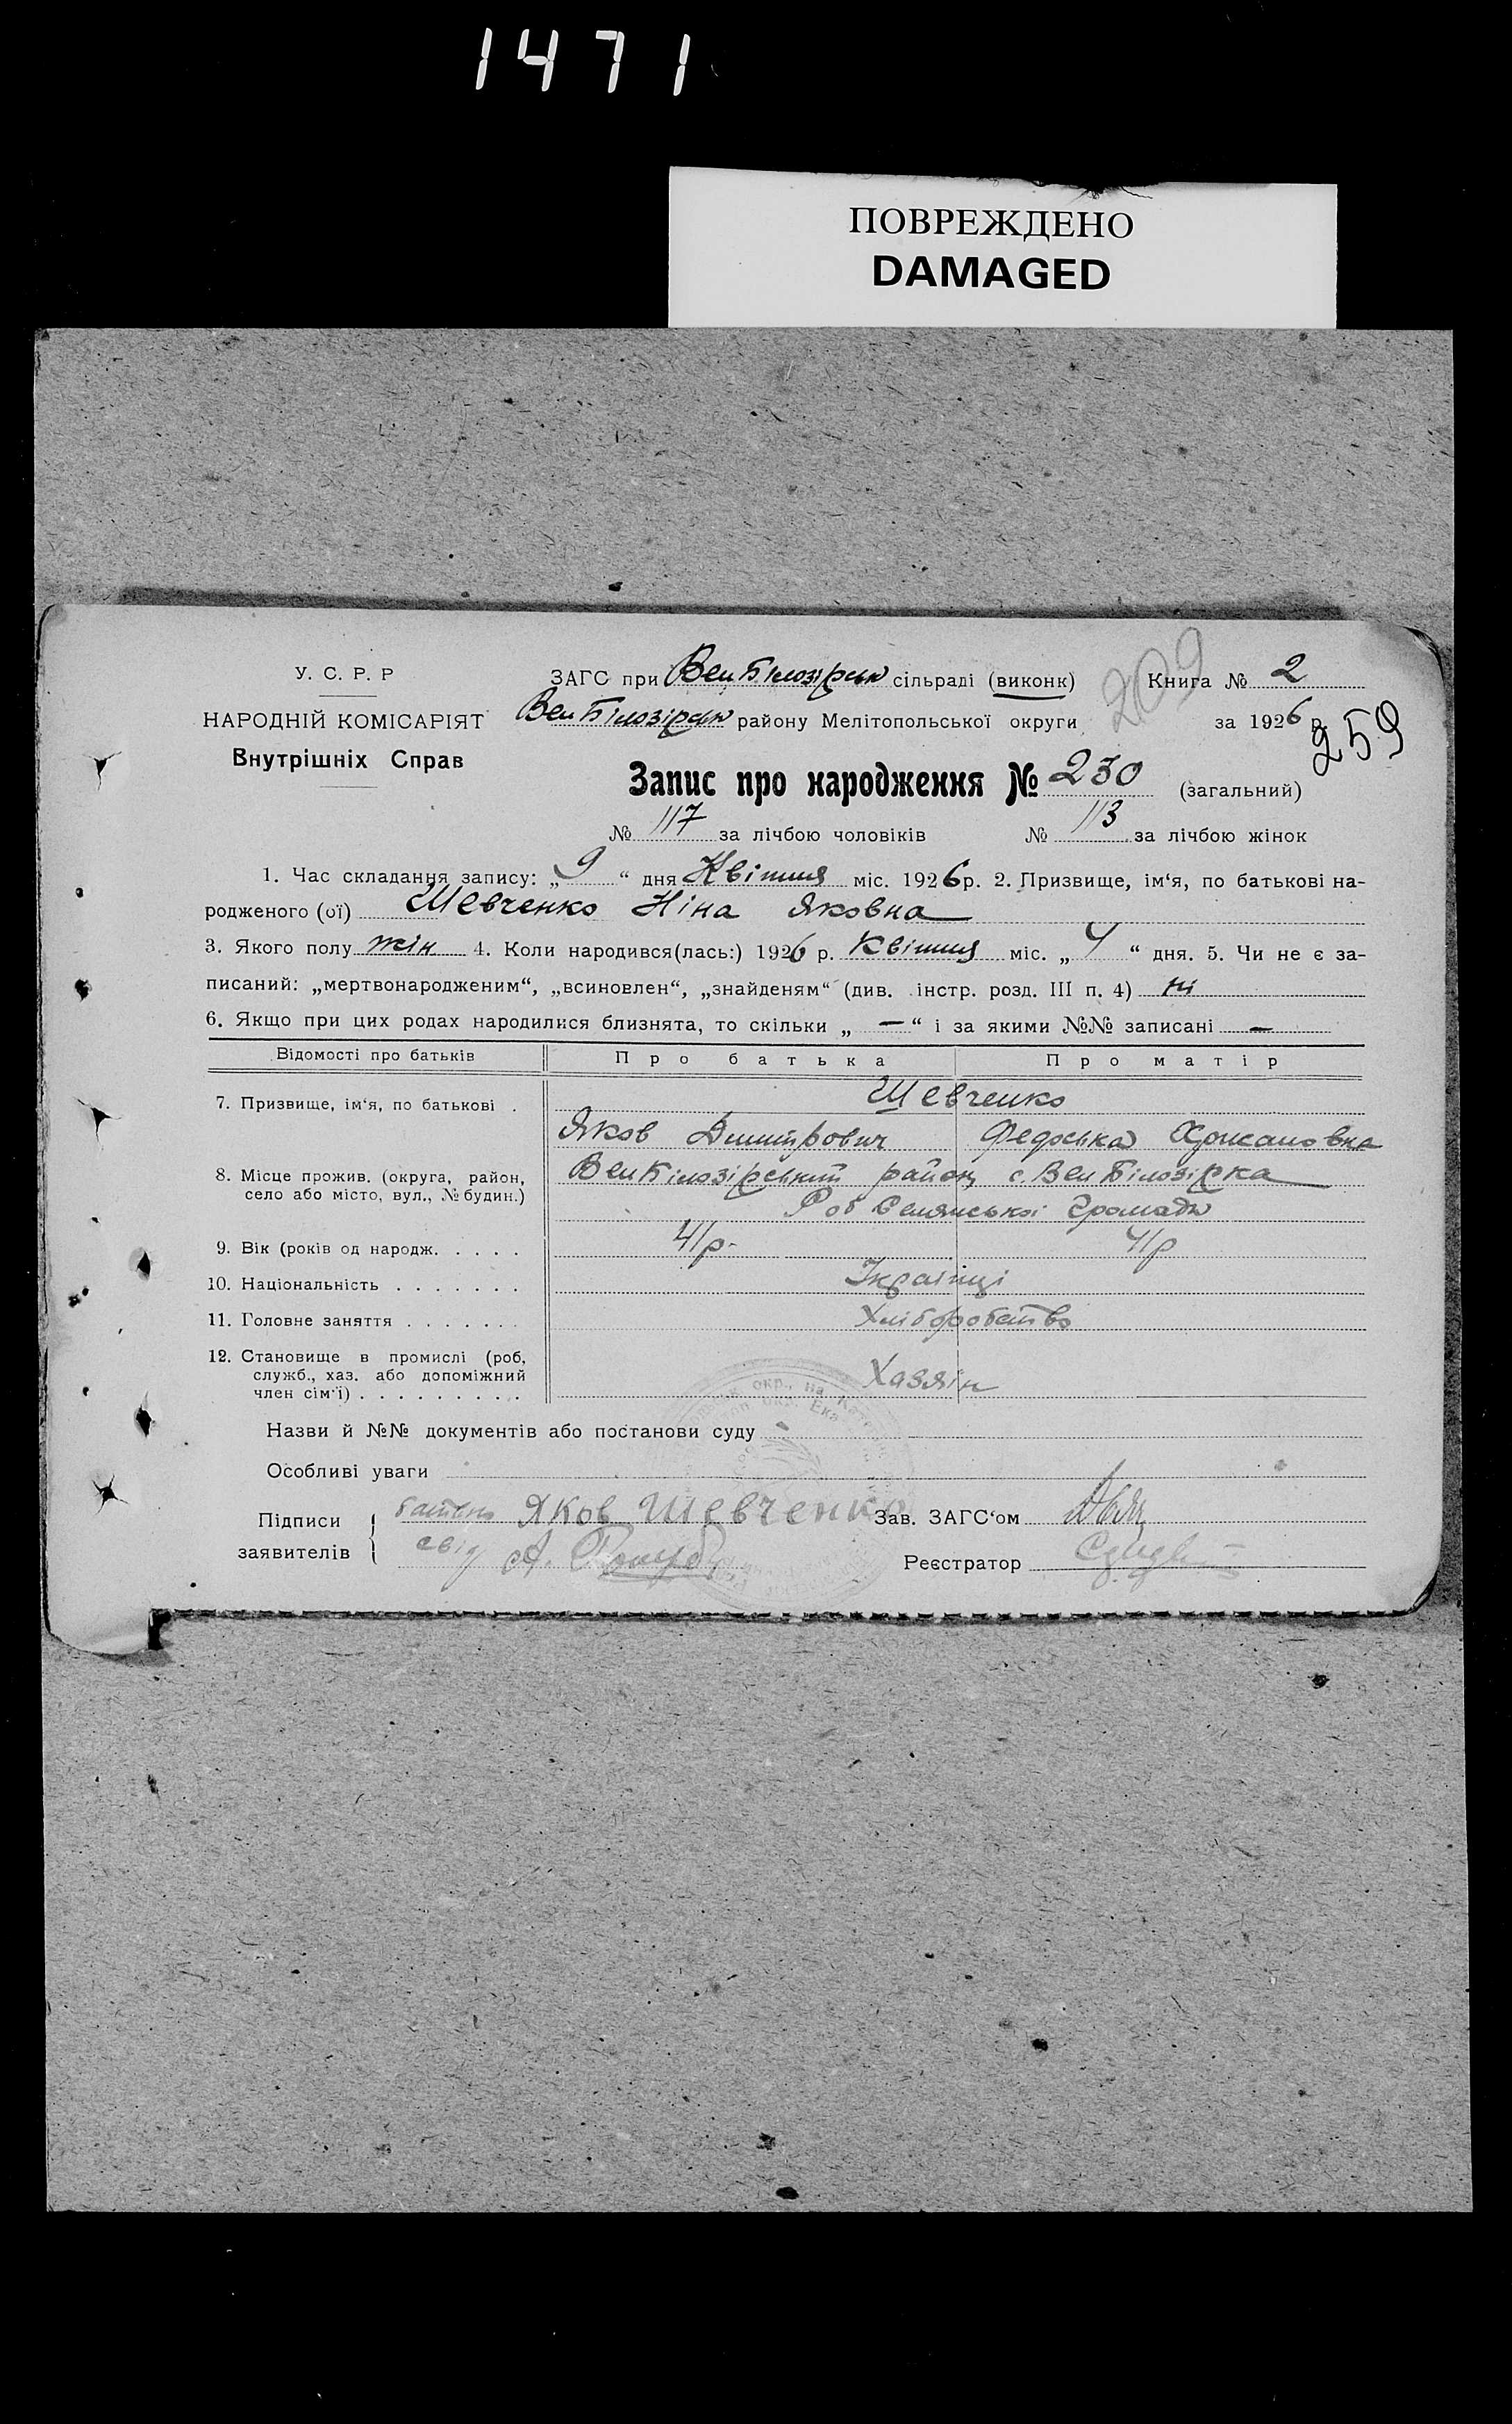 1471
ПОВРЕЖДЕНО
DAMAGED
У. С. Р. Р
НАРОДНІЙ КОМІСАРІЯТ
Внутрішніх Справ
ЗАГС при Вел Білозірськ сільраді (виконк) 209 Книга № 2
Вел Білозірськ району Мелітопольської округи за 1926 р.
259
Запис про народження № 230 (загальний)
№ 117 за лічбою чоловіків № 113 за лічбою жінок
1. Час складання запису: „9“ дня Квітня міс. 1926 р. 2. Призвище, ім‘я, по батькові на-
родженого (ої) Шевченко Ніна Яковна
3. Якого полу жін 4. Коли народився(лась:) 1926 р. Квітня міс. „4“ дня. 5. Чи не є за-
писаний: „мертвонародженим“, „всиновлен“, „знайденям“ (див. інстр. розд. III п. 4) ні
6. Якщо при цих родах народилися близнята, то скільки „—“ і за якими №№ записані —
Відомості про батьків Про батька Про матір
7. Призвище, ім‘я, по батькові . Шевченко
Яков Дмитрович Федоська
8. Місце прожив. (округа, район, Вел Білозірський район, с. Вел Білозірка
село або місто, вул., № будин.)
Роб Селянської Громади
9. Вік (років од народж. . . . . 41 р. 41 р
10. Національність . . . . . . . Українці
11. Головне заняття . . . . . . . Хліборобство
12. Становище в промислі (роб,
служб., хаз. або допоміжний Хазяін
член сім‘ї) . . . . . . . . .
Назви й №№ документів або постанови суду -
Особливі уваги
Підписи батько Яков Шевченко Зав. ЗАГС‘ом
заявителів свід А. Реєстратор